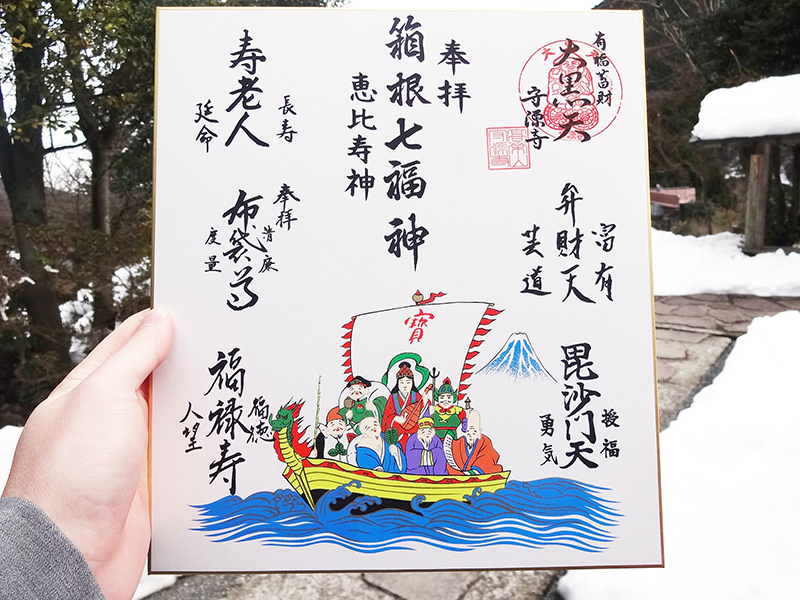 有福蓄財
大黒天
守源寺
富有
弁財天
芸道
授福
毘沙門天
勇気
奉拝
箱根七福神
恵比寿神
長寿
寿老人
延命
奉拝
清廉
布袋尊
度量
福徳
福禄寿
人望
寶